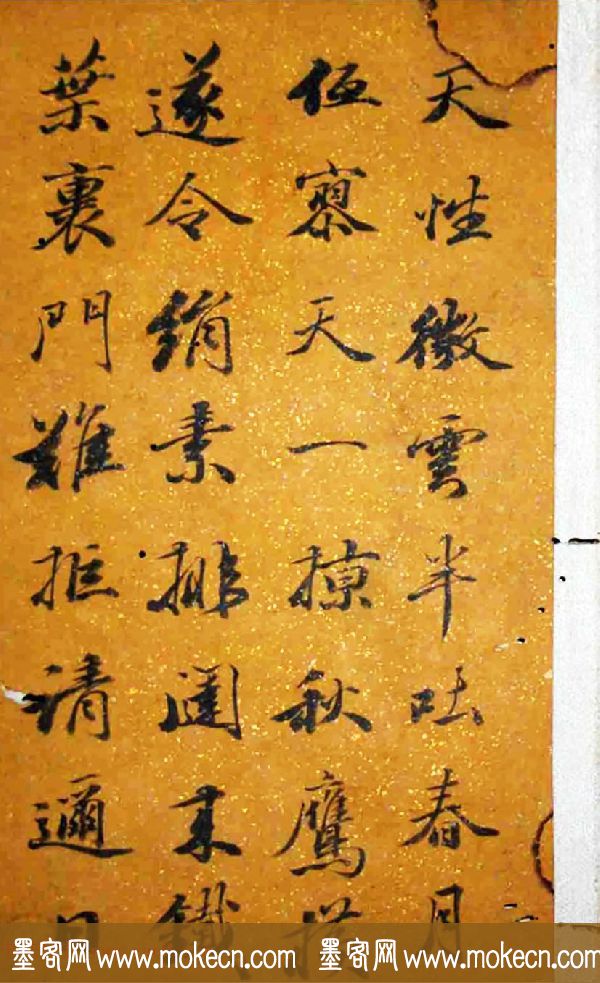 天性微雲半吐春月
伍寥天一掠秋鷹
遂令絹素排闥來鐵
葉裹門難拒請邇
墨客网 www.mokecn.com 墨客网 www.mokecn.com